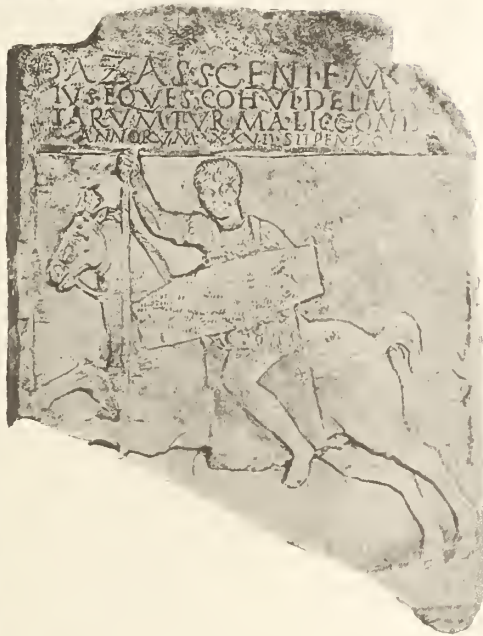 DAZAS·SCENI·F·M
IVS·EQVES·COH·VI·DELM
TARVM·TVRMA·LICCONIS
ANNORVM·XXVII·STIPENDIO